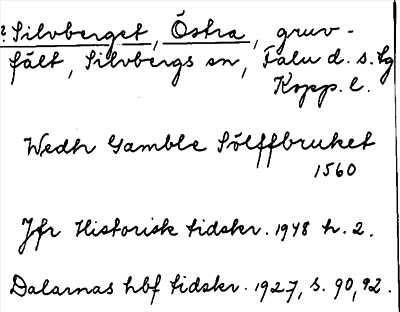 ? Silvberget, Östra, gruv-
fält, Silvbergs sn, Falu d. s. lg
Kopp. l.
Wedh Gamble Sölffbruket
1560
Jfr Historisk tidskr. 1948 h. 2.
Dalarnas hbf tidskr. 1927, s. 90, 92.